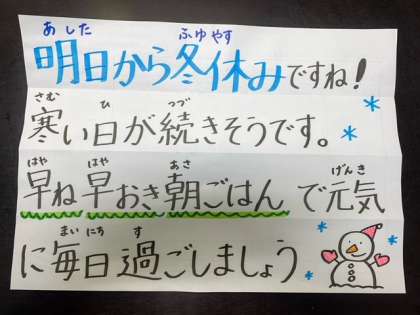 あした ふゆやす
明日から冬休みですね!
さむ ひ つづ
寒い日が続きそうです。
はや はや あさ げんき
早ね早おき朝ごはんで元気
まいにち す
に毎日過ごしましょう